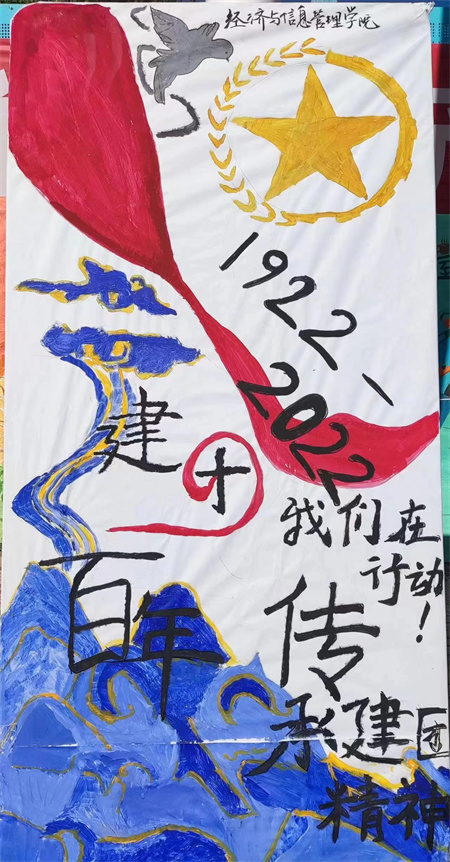 经济与信息管理学院
1922、
2022
建十
百年
我们在
行动！
传
承建团
精神